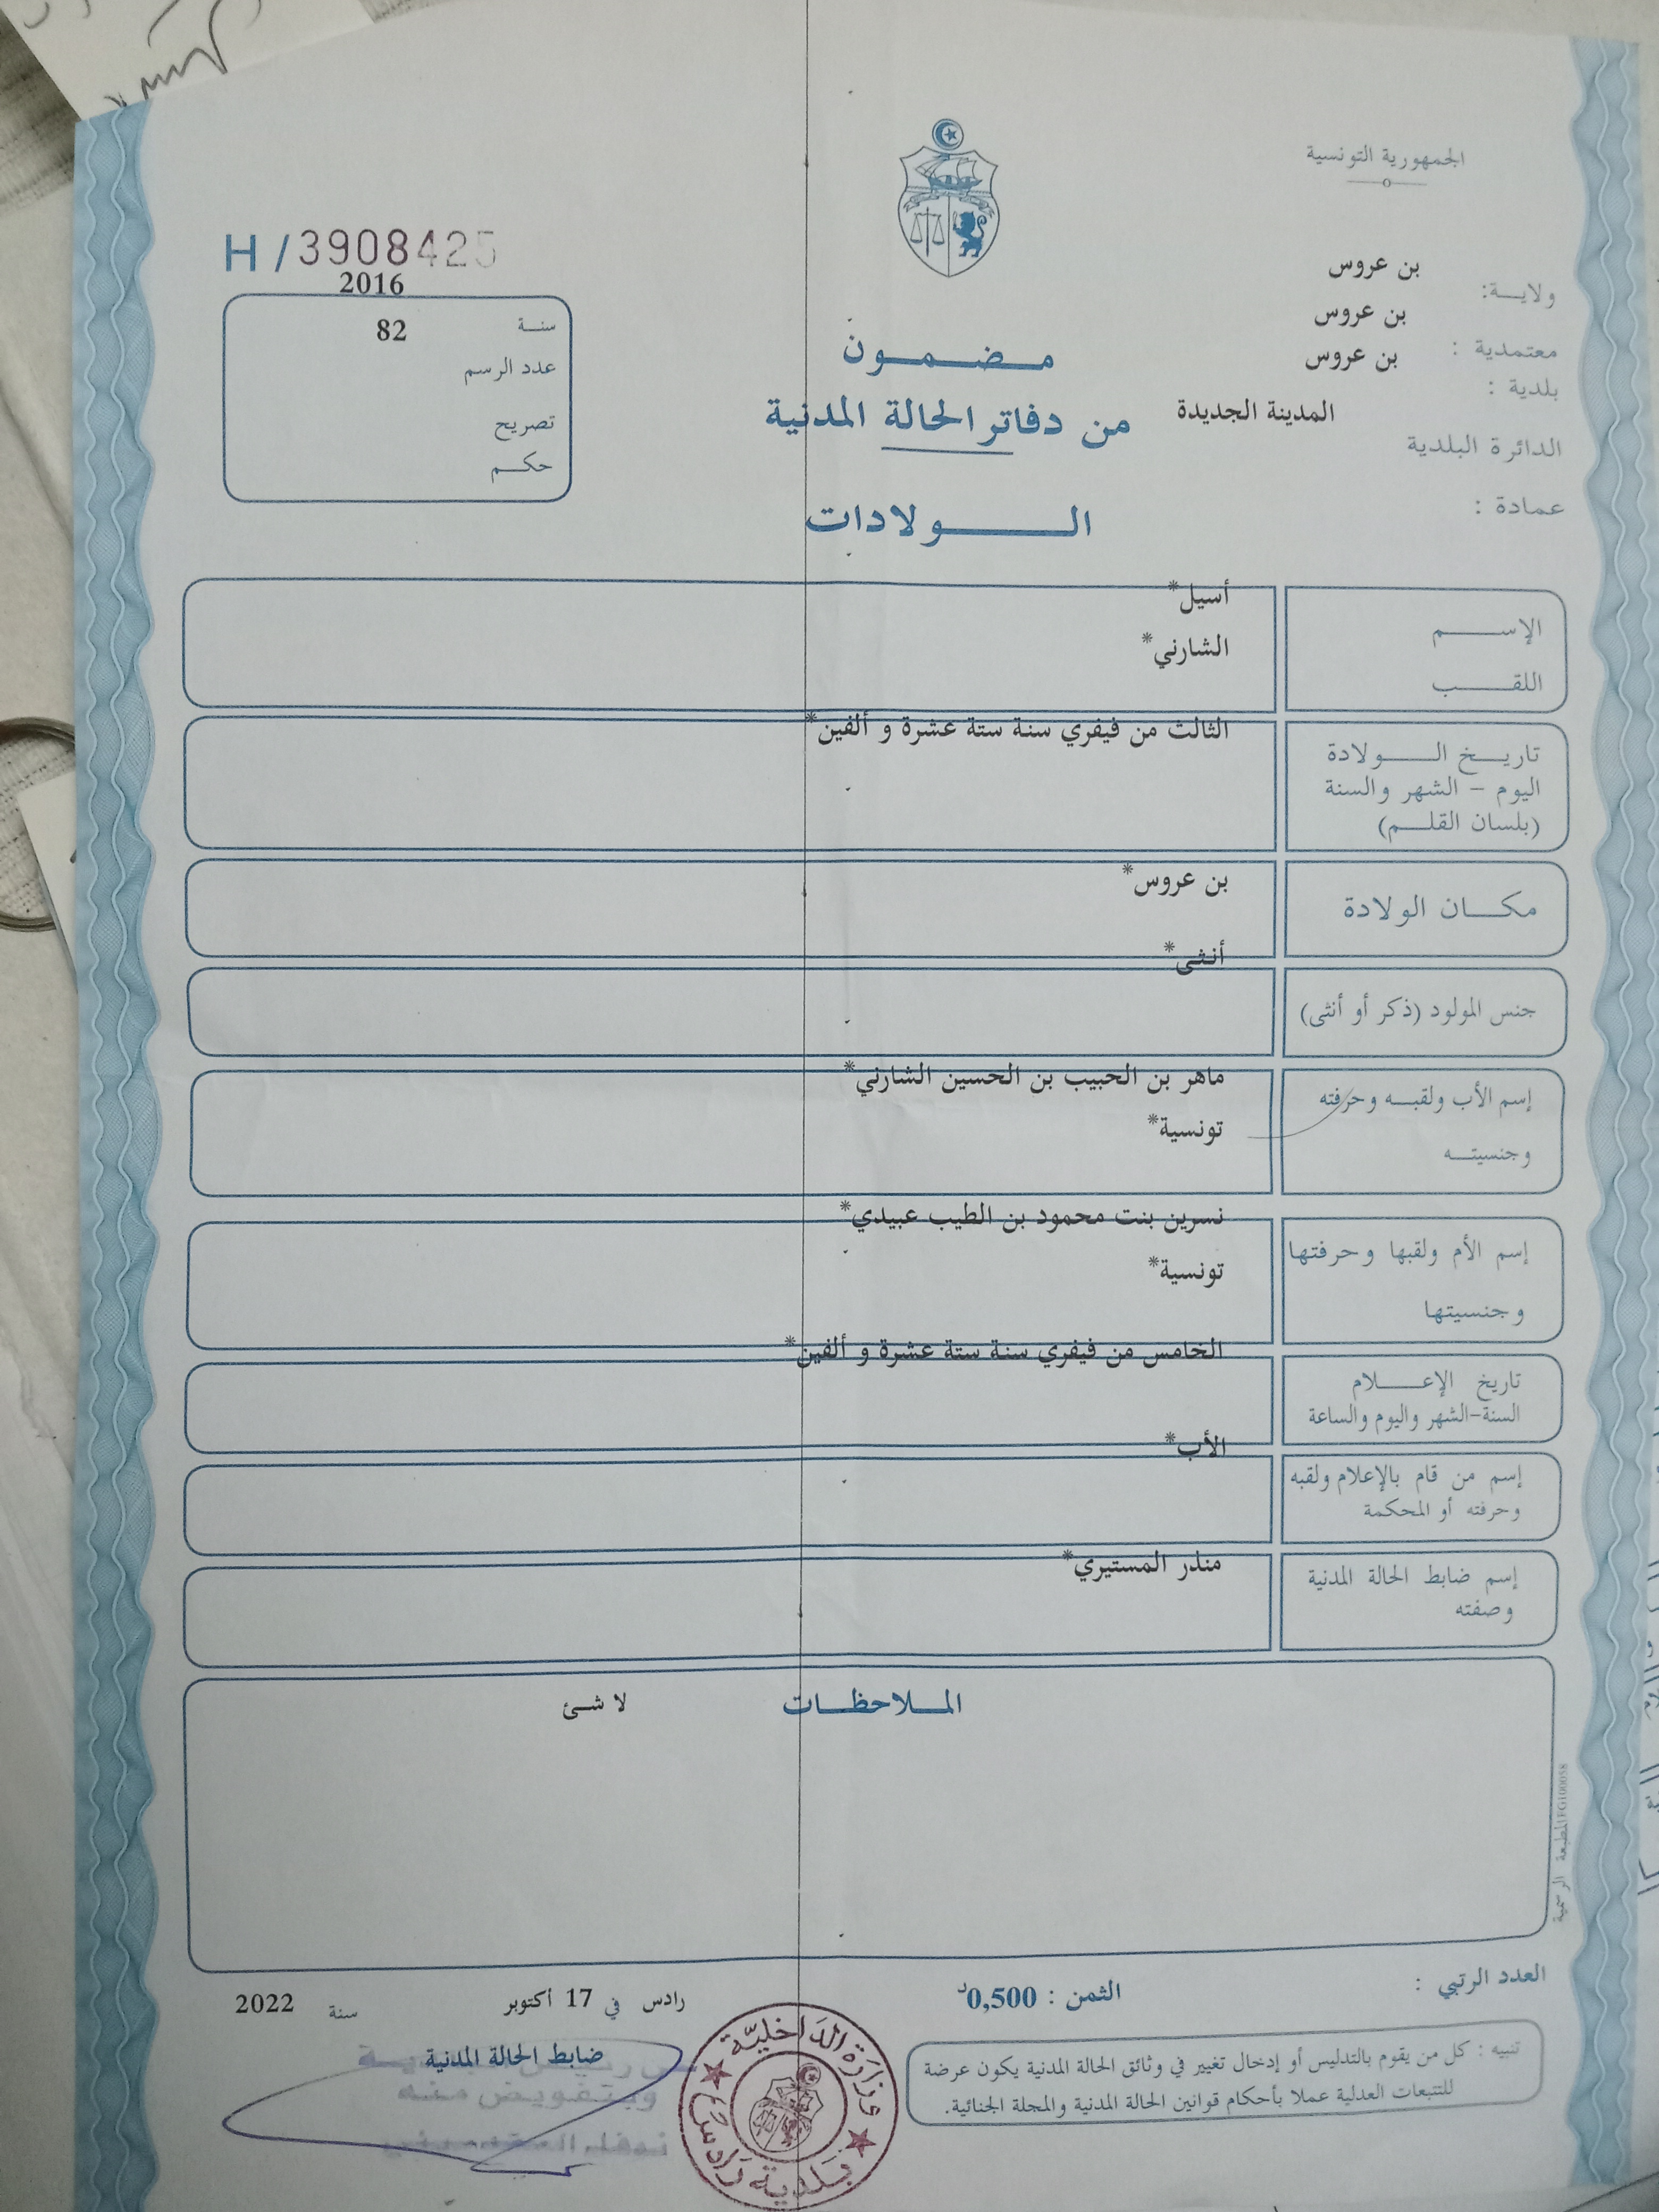 الجمهورية التونسية
ولايــة: بن عروس
معتمدية : بن عروس
بلدية : بن عروس
الدائرة البلدية المدينة الجديدة
عمادة :
H/3908425
2016
سنــة 82
عدد الرسم
تصريح
حكــم
مـضـمـون
من دفاتر الحالة المدنية
الــولادات
الإســـم أسيل*
اللقــب الشارني*
الثالث من فيفري سنة ستة عشرة و ألفين*
تاريــخ الــولادة
اليوم - الشهر والسنة
(بلسان القلــم)
بن عروس*
مكــان الولادة
أنثى*
جنس المولود (ذكر أو أنثى)
ماهر بن الحبيب بن الحسين الشارني*
إسم الأب ولقبــه وحرفته
تونسية*
وجنسيتــه
نسرين بنت محمود بن الطيب عبيدي*
إسم الأم ولقبها وحرفتها
تونسية*
وجنسيتها
الخامس من فيفري سنة ستة عشرة و ألفين*
تاريخ الإعــلام
السنة-الشهر واليوم والساعة
الأب*
إسم من قام بالإعلام ولقبه
وحرفته أو المحكمة
منذر المستيري*
إسم ضابط الحالة المدنية
وصفته
المــلاحظــات لا شئ
المطبعة الرسمية FG100058
العدد الرتبي :
الثمن : 0,500د
رادس في 17 أكتوبر سنة 2022
ضابط الحالة المدنية
وبتفويض منه
وزارة الداخلية
بلدية رادس
تنبيه : كل من يقوم بالتدليس أو إدخال تغيير في وثائق الحالة المدنية يكون عرضة
للتتبعات العدلية عملا بأحكام قوانين الحالة المدنية والمجلة الجنائية.